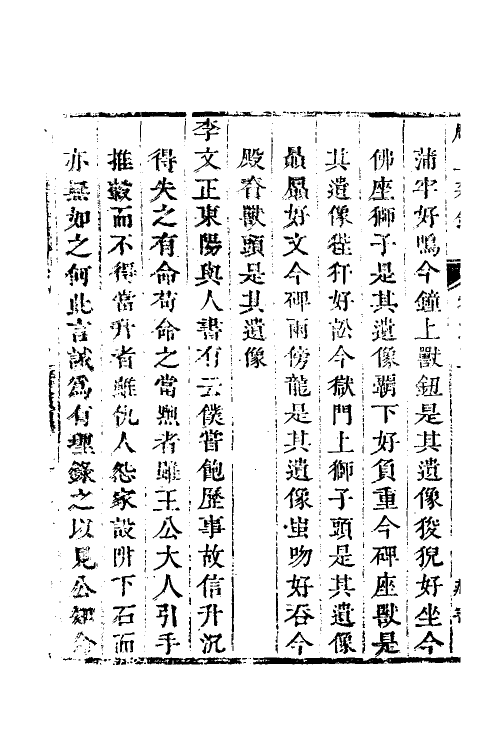 蒲牢好鳴今鐘上獸鈕是其遺像狻猊好坐今
佛座獅子是其遺像覇下好負重今碑座獸是
其遺像狴犴好訟今獄門上獅子頭是其遺像
贔屭好文今碑兩傍龍是其遺像蚩吻好吞今
殿脊獸頭是其遺像
李文正東陽與人書有云僕嘗飽歷事故信升沉
得失之有命苟命之當無者雖王公大人引手
推轂而不得當升者雖仇人怨家設阱下石而
亦無如之何此言誠爲有理錄之以見公知命